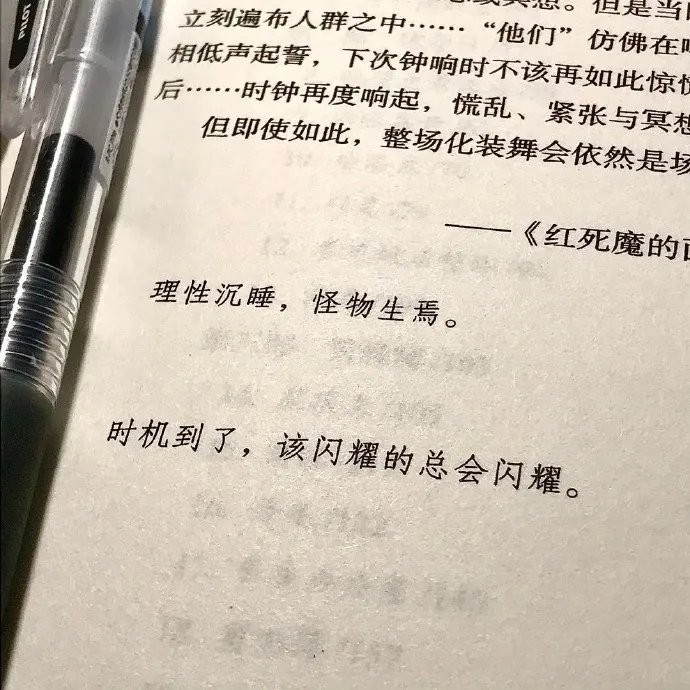 冥想。但是当
立刻遍布人群之中……“他们”仿佛在
相低声起誓，下次钟响时不该再如此惊
后……时钟再度响起，慌乱、紧张与冥想
但即使如此，整场化装舞会依然是场
——《红死魔的
理性沉睡，怪物生焉。
时机到了，该闪耀的总会闪耀。
PILOT